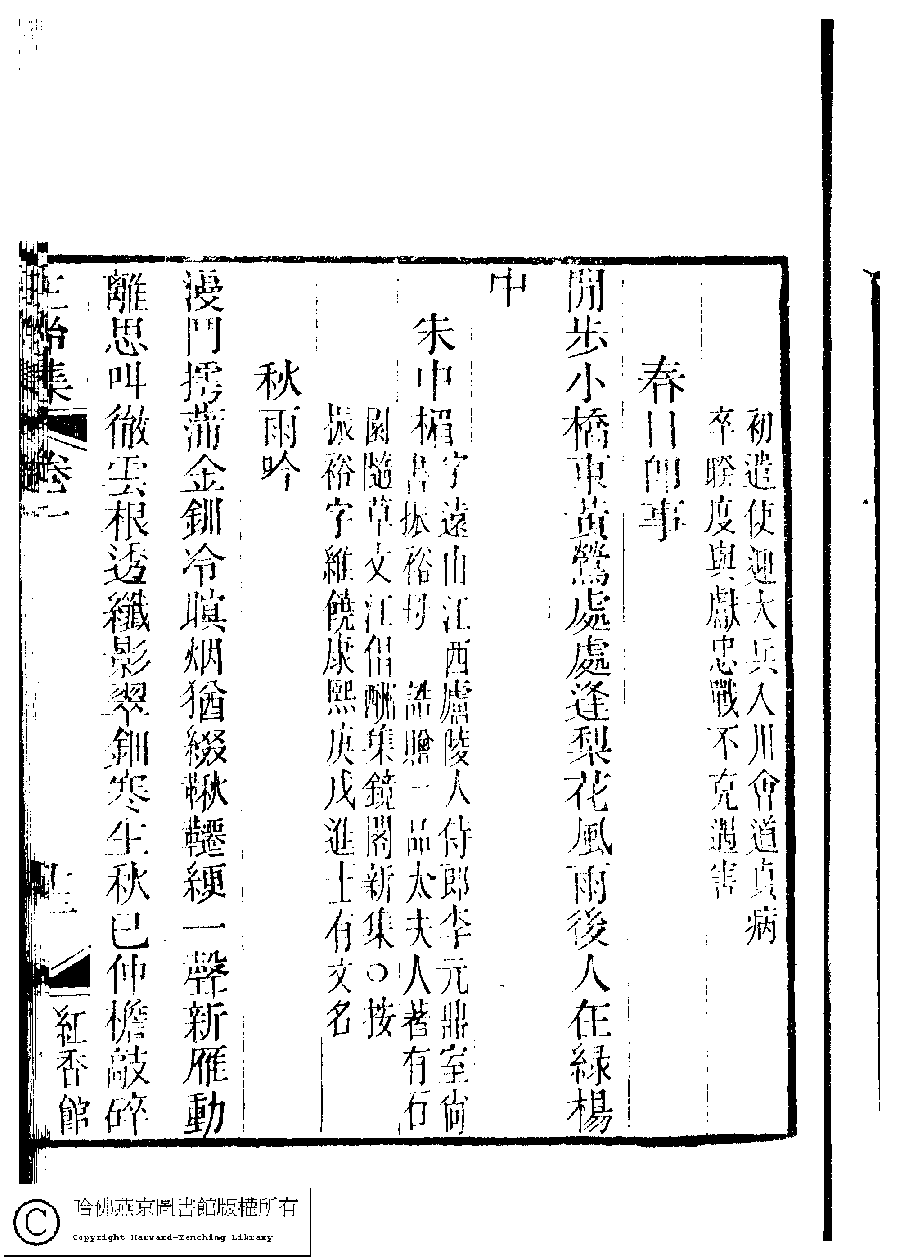 初遣使迎大兵入川會道真病
卒暌度與獻忠戰不克遇害
春日即事
閒步小橋東黃鶯處處逢梨花風雨後人在綠楊
中
朱中楣字遠山江西廬陵人侍郎李元鼎室尚
書振裕母 誥贈一品太夫人著有石
園隨草文江倡酬集鏡閣新集○按
振裕字維饒康熙庚戌進士有文名
秋雨吟
漫鬥摴蒲金釧冷瞋烟猶綴鞦韆綆一聲新雁動
離思叫徹雲根透纖影翠鈿寒生秋已仲檐敲碎
正始集 卷二 十二 紅香館
哈佛燕京圖書館版權所有
Copyright Harvard-Yenching Library